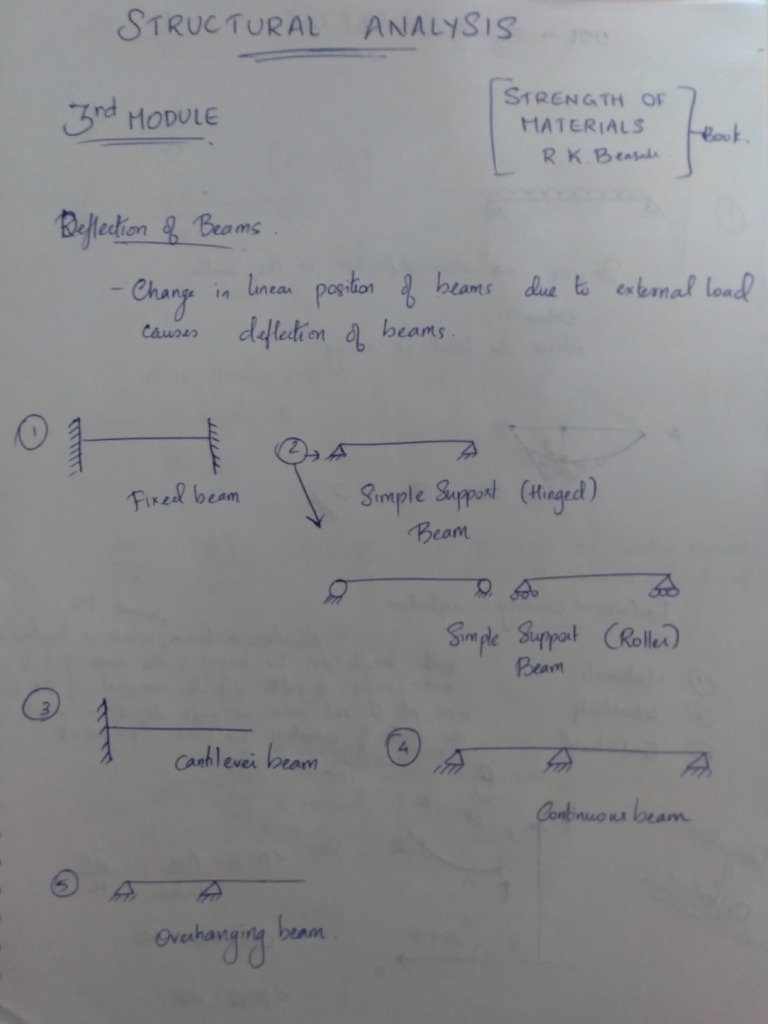 STRUCTURAL ANALYSIS
3rd MODULE
STRENGTH OF
MATERIALS
R.K. Bansali
Book.
Deflection of Beams.
- Change in linear position of beams due to external load
causes deflection of beams.
①
Fixed beam
②
Simple Support (Hinged)
Beam
Simple Support (Roller)
Beam
③
Cantilever beam
④
Continuous beam
⑤
Overhanging beam.